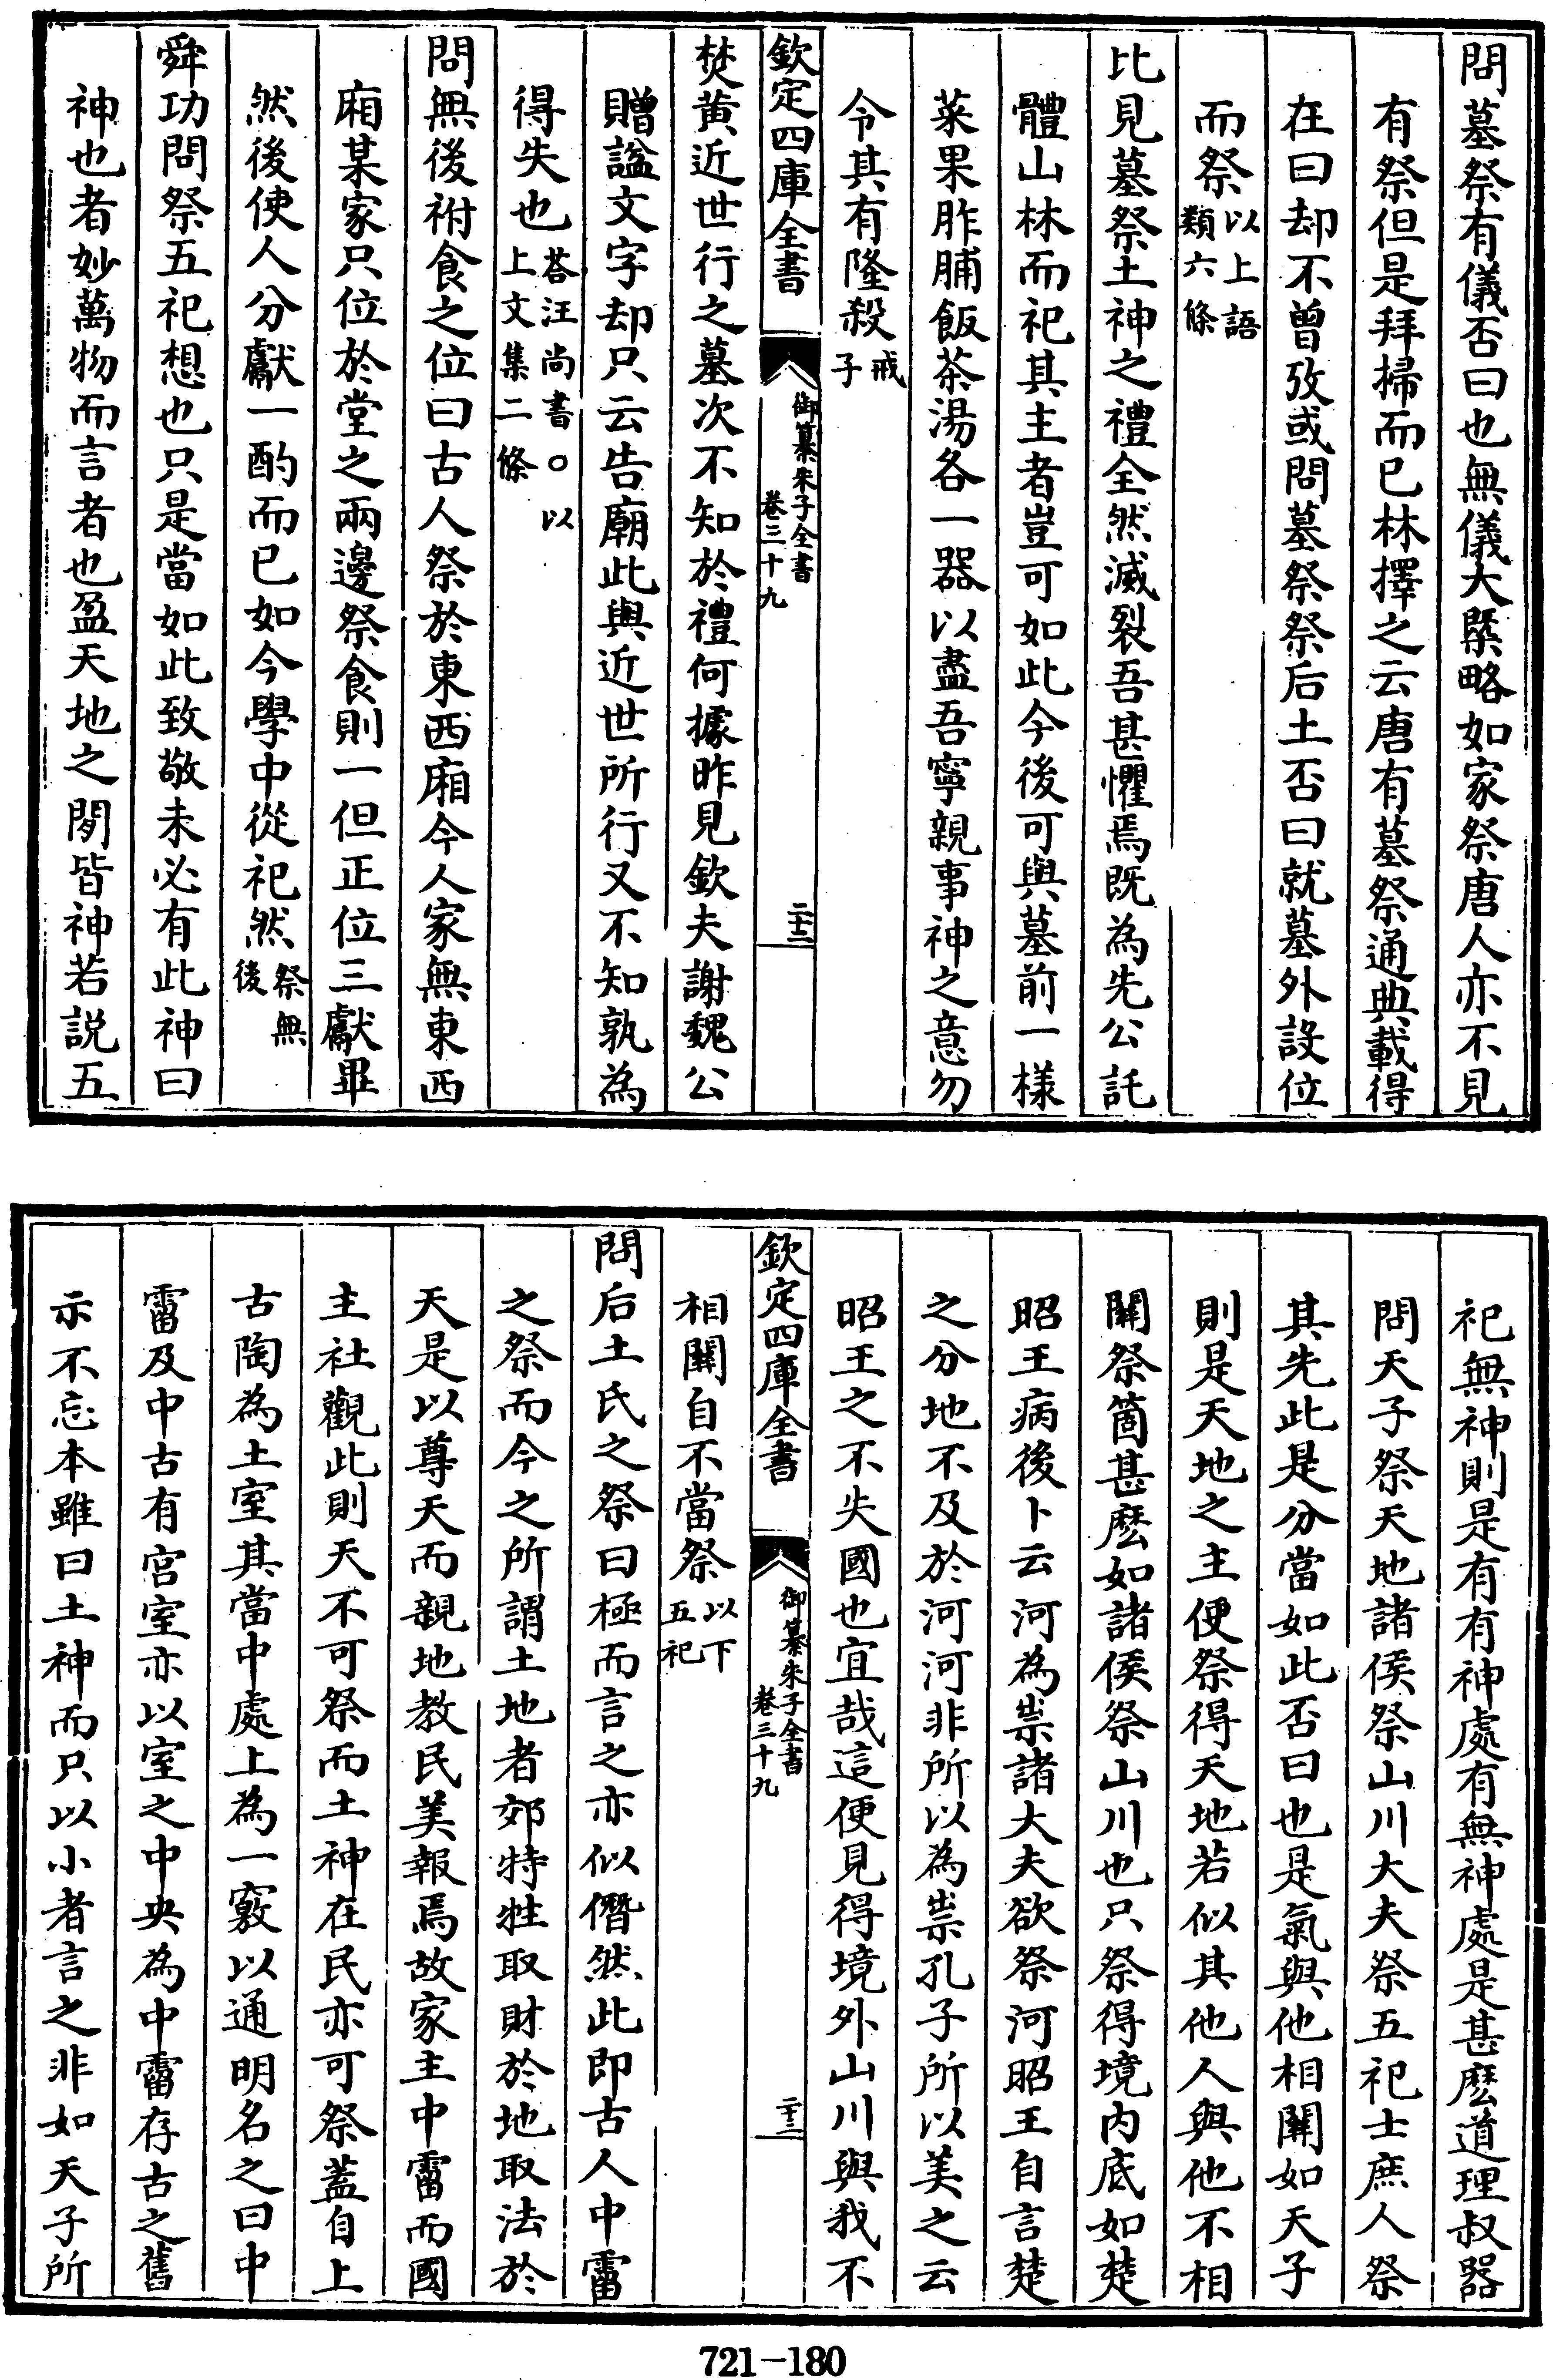 問墓祭有儀否曰也無儀大槩略如家祭唐人亦不見
有祭但是拜掃而已林擇之云唐有墓祭通典載得
在曰却不曾攷或問墓祭祭后土否曰就墓外設位
而祭以上語類六條
比見墓祭土神之禮全然滅裂吾甚懼焉既為先公託
體山林而祀其主者豈可如此今後可與墓前一樣
菜果胙脯飯茶湯各一器以盡吾寧親事神之意勿
令其有隆殺戒子
欽定四庫全書
御纂朱子全書
卷三十九
二十二
焚黄近世行之墓次不知於禮何據昨見欽夫謝魏公
贈諡文字却只云告廟此與近世所行又不知孰為
得失也荅汪尚書○以上文集二條
問無後祔食之位曰古人祭於東西廂今人家無東西
廂某家只位於堂之兩邊祭食則一但正位三獻畢
然後使人分獻一酌而已如今學中從祀然祭無後
舜功問祭五祀想也只是當如此致敬未必有此神曰
神也者妙萬物而言者也盈天地之閒皆神若説五
祀無神則是有有神處有無神處是甚麽道理叔器
問天子祭天地諸侯祭山川大夫祭五祀士庶人祭
其先此是分當如此否曰也是氣與他相關如天子
則是天地之主便祭得天地若似其他人與他不相
關祭箇甚麽如諸侯祭山川也只祭得境内底如楚
昭王病後卜云河為祟諸大夫欲祭河昭王自言楚
之分地不及於河河非所以為祟孔子所以美之云
昭王之不失國也宜哉這便見得境外山川與我不
欽定四庫全書
御纂朱子全書
卷三十九
二十三
相關自不當祭以下五祀
問后土氏之祭曰極而言之亦似僭然此即古人中霤
之祭而今之所謂土地者郊特牲取財於地取法於
天是以尊天而親地教民美報焉故家主中霤而國
主社觀此則天不可祭而土神在民亦可祭蓋自上
古陶為土室其當中處上為一竅以通明名之曰中
霤及中古有宮室亦以室之中央為中霤存古之舊
示不忘本雖曰土神而只以小者言之非如天子所
721-180